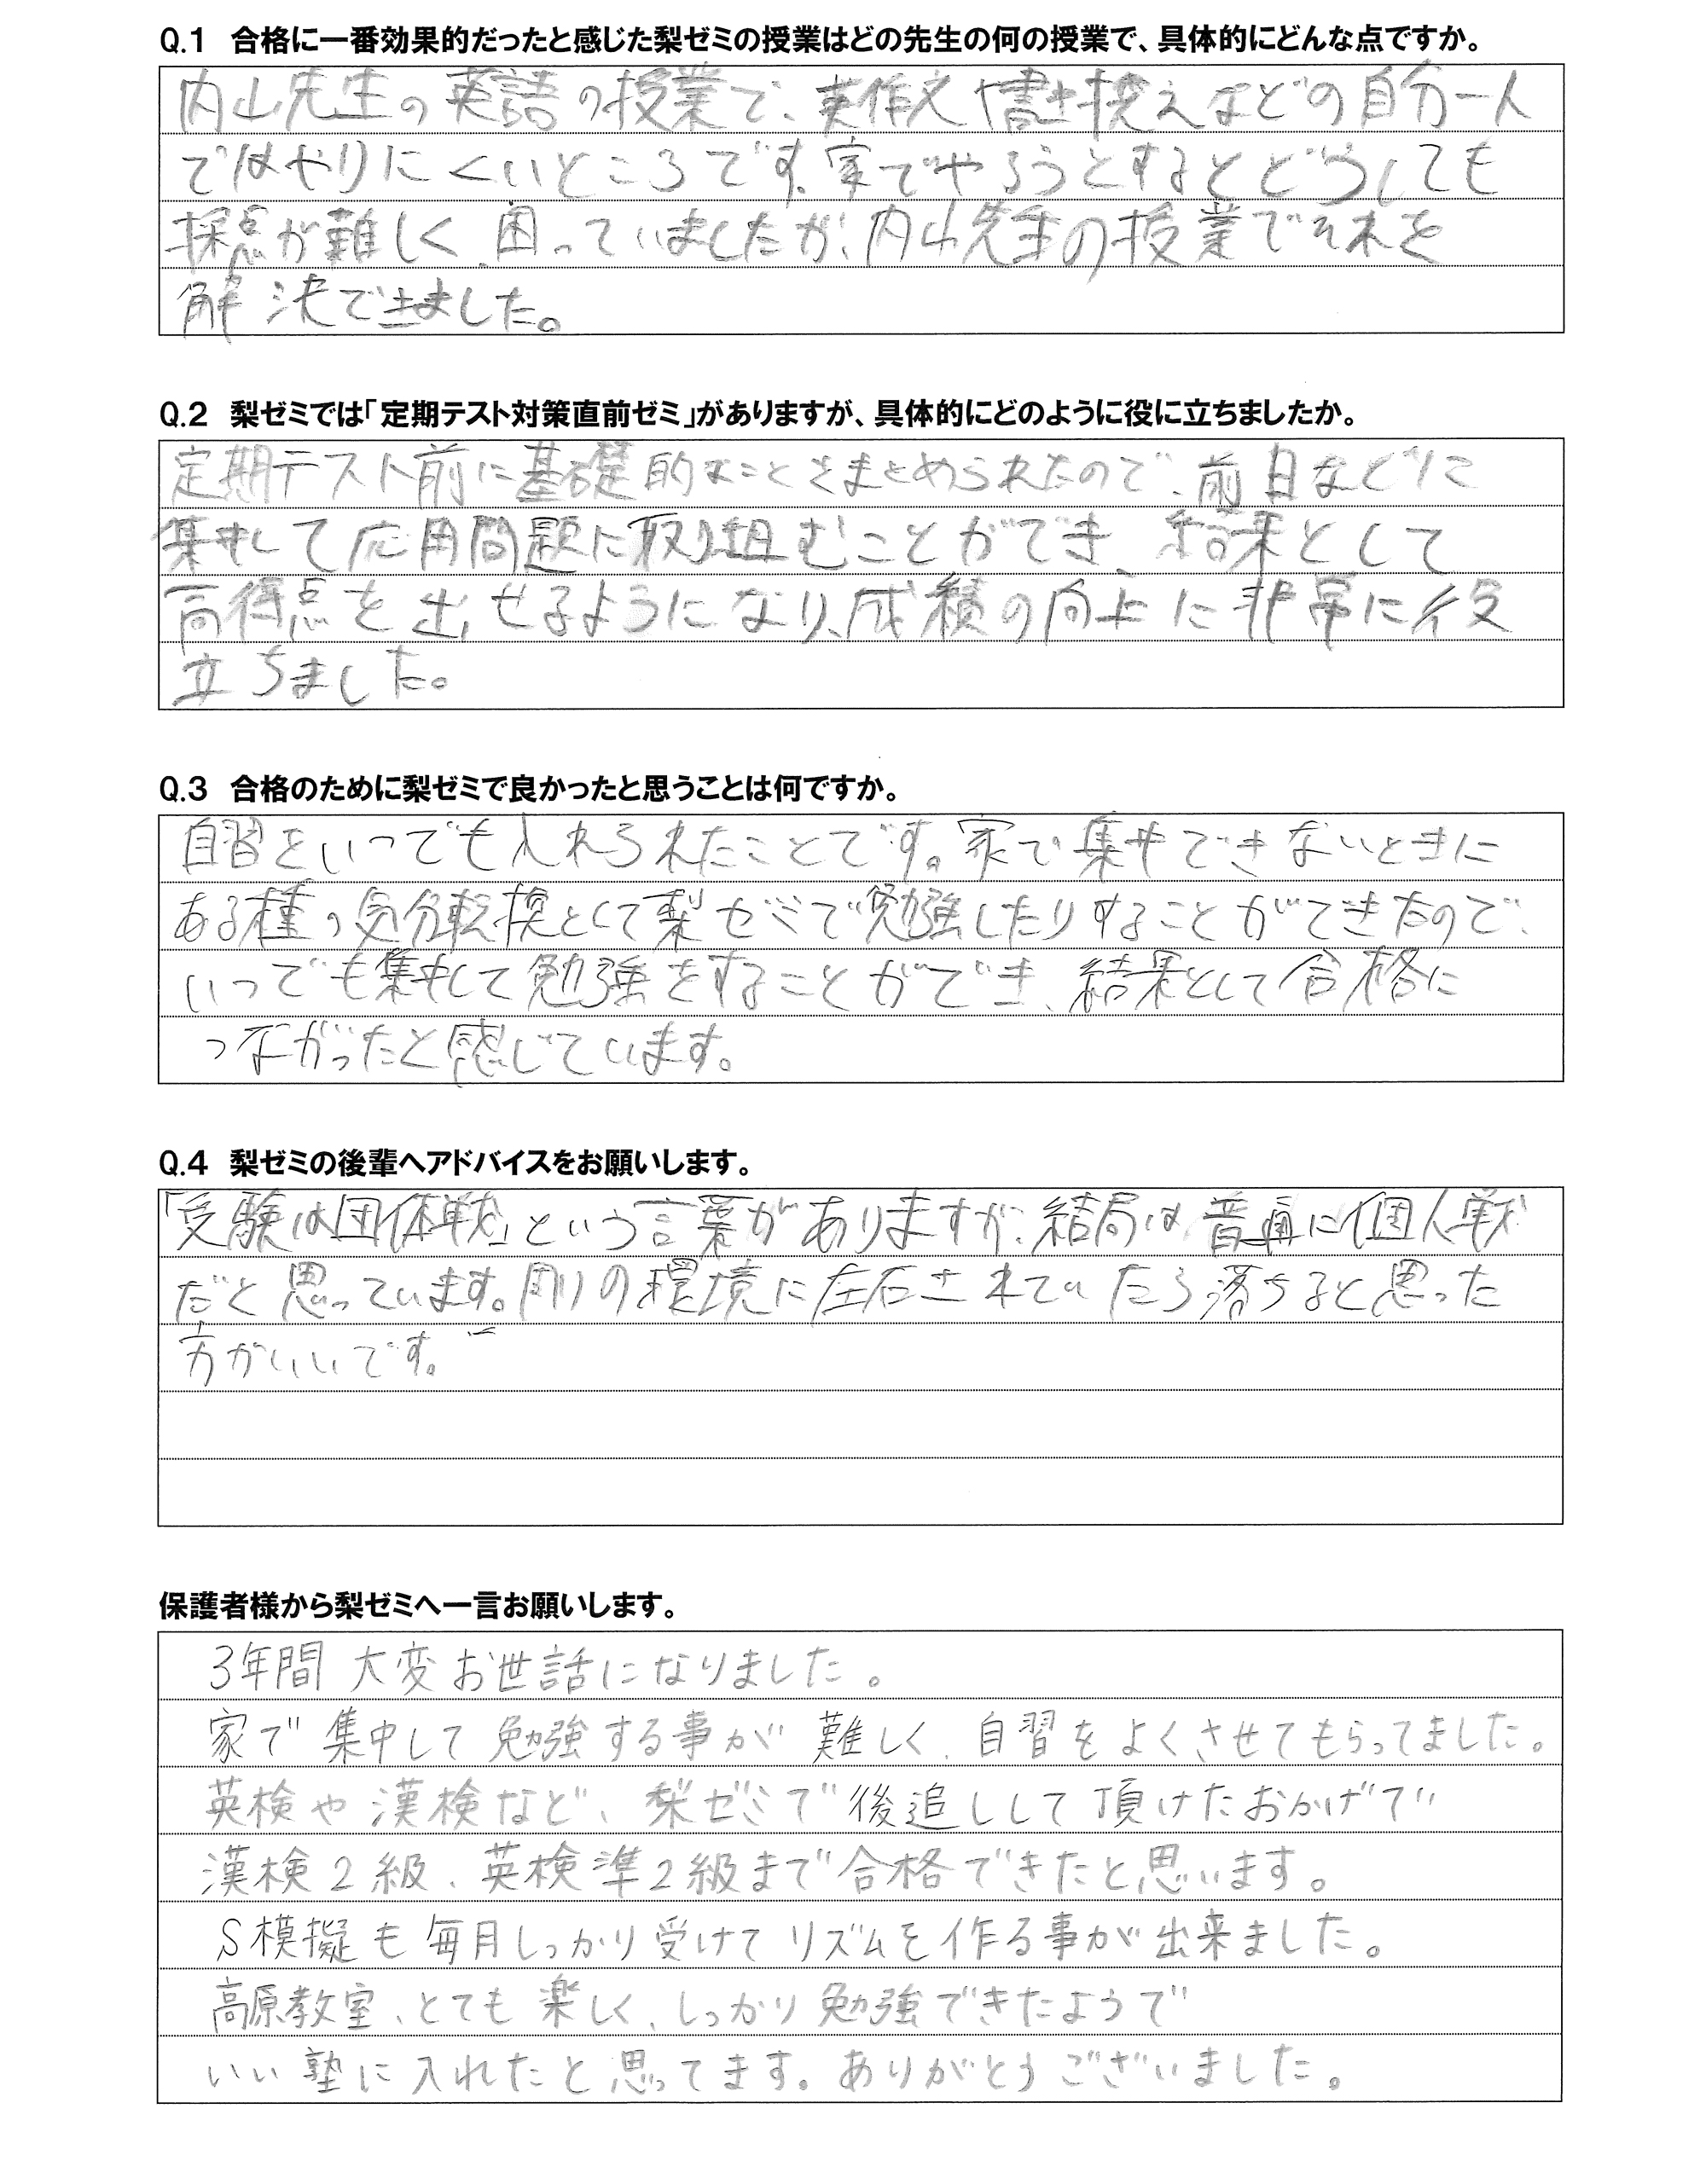 Q.1 合格に一番効果的だったと感じた梨ゼミの授業はどの先生の何の授業で、具体的にどんな点ですか。
内山先生の英語の授業で、英作文や書き換えなどの自分一人
ではやりにくいところです。家でやろうとするとどうしても
採点が難しく、困っていましたが、内山先生の授業でそれを
解決できました。
Q.2 梨ゼミでは「定期テスト対策直前ゼミ」がありますが、具体的にどのように役に立ちましたか。
定期テスト前に基礎的なことをまとめられたので、前日などに
集中して応用問題に取り組むことができ、結果として
高得点を出せるようになり、成績の向上に非常に役
立ちました。
Q.3 合格のために梨ゼミで良かったと思うことは何ですか。
自習をいつでも入れられたことです。家で集中できないときに
ある種の気分転換として梨ゼミで勉強したりすることができたので、
いつでも集中して勉強をすることができ、結果として合格に
つながったと感じています。
Q.4 梨ゼミの後輩へアドバイスをお願いします。
「受験は団体戦」という言葉がありますが、結局は普通に個人戦
だと思っています。周りの環境に左右されていたら落ちると思った
方がいいです。
保護者様から梨ゼミへ一言お願いします。
3年間 大変お世話になりました。
家で集中して勉強する事が難しく、自習をよくさせてもらってました。
英検や漢検など、梨ゼミで後追しして頂けたおかげで
漢検2級、英検準2級まで合格できたと思います。
S模擬も毎月しっかり受けてリズムを作る事が出来ました。
高原教室、とても楽しく、しっかり勉強できたようで
いい塾に入れたと思ってます。ありがとうございました。